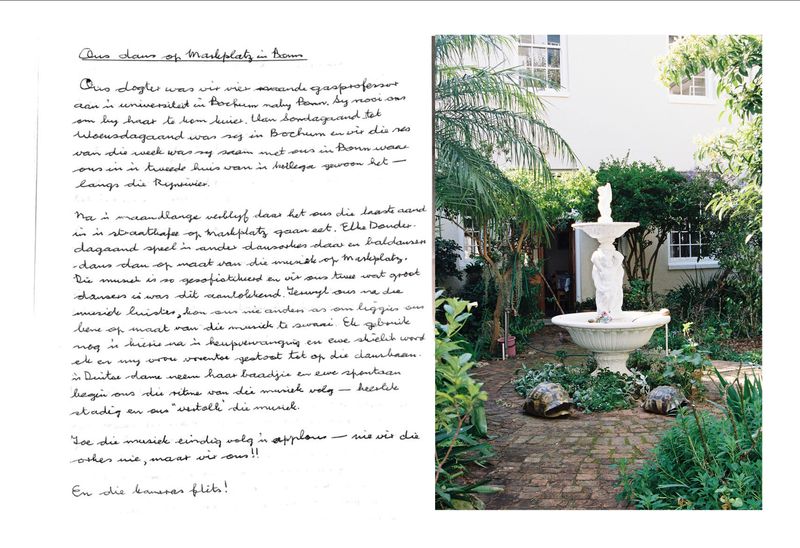 Ons dans op Markplatz in Bonn
Ons dogter was vir vier maande gasprofessor
aan 'n universiteit in Bochum naby Bonn. Sy nooi ons
om by haar te kom kuier. Van Sondagaand tot
Woensdagaand was sy in Bochum en vir die res
van die week was sy saam met ons in Bonn waar
ons in 'n tweede huis van 'n kollega gewoon het –
langs die Rynrivier.
Na 'n maandlange verblyf daar het ons die laaste aand
in 'n straatkafee op Markplatz gaan eet. Elke Donder-
dagaand speel 'n ander dansorkes daar en baldansers
dans dan op maat van die musiek op Markplatz.
Die musiek is so gesofistikeerd en vir ons twee wat groot
dansers is was dit aanloklkend. Terwyl ons na die
musiek luister, kon ons nie anders as om liggies ons
bene op maat van die musiek te swaai. Ek gebruik
nog 'n kierie na 'n heupvervanging en ewe skielik word
ek en my vrou vorentoe gestoot tot op die dansbaan.
'n Duitse dame neem haar baadjie en ewe spontaan
begin ons die ritme van die musiek volg – heerlik
stadig en ons "vertolk" die musiek.
Toe die musiek eindig volg 'n applous – nie vir die
orkes nie, maar vir ons!!
En die kameras flits!